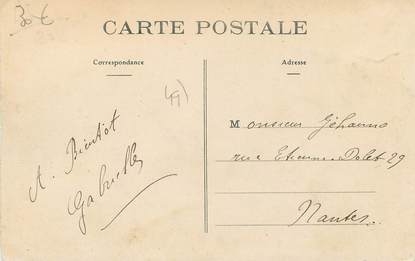 30 €
CARTE POSTALE
Correspondance
Adresse
49)
A. Bientot
Gabrielle
Monsieur Jéhanno
rue Etienne-Dolet 29
Nantes